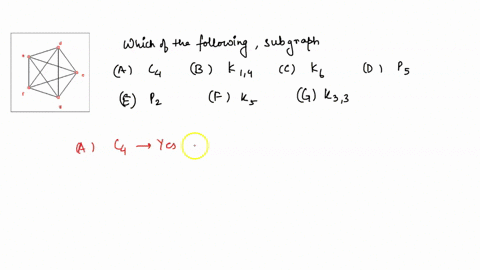 Which of the following, subgraph
(A) C4 (B) K1,4 (C) K6 (D) P5
(E) P2 (F) K5 (G) K3,3
(A) C4 → Yes